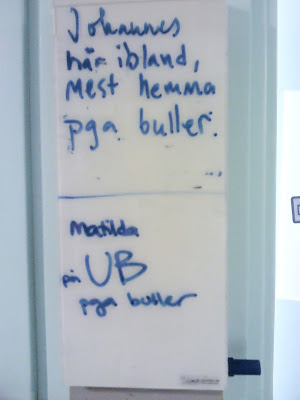 Johannes
här ibland,
mest hemma
pga buller.
Matilda
på UB
pga buller